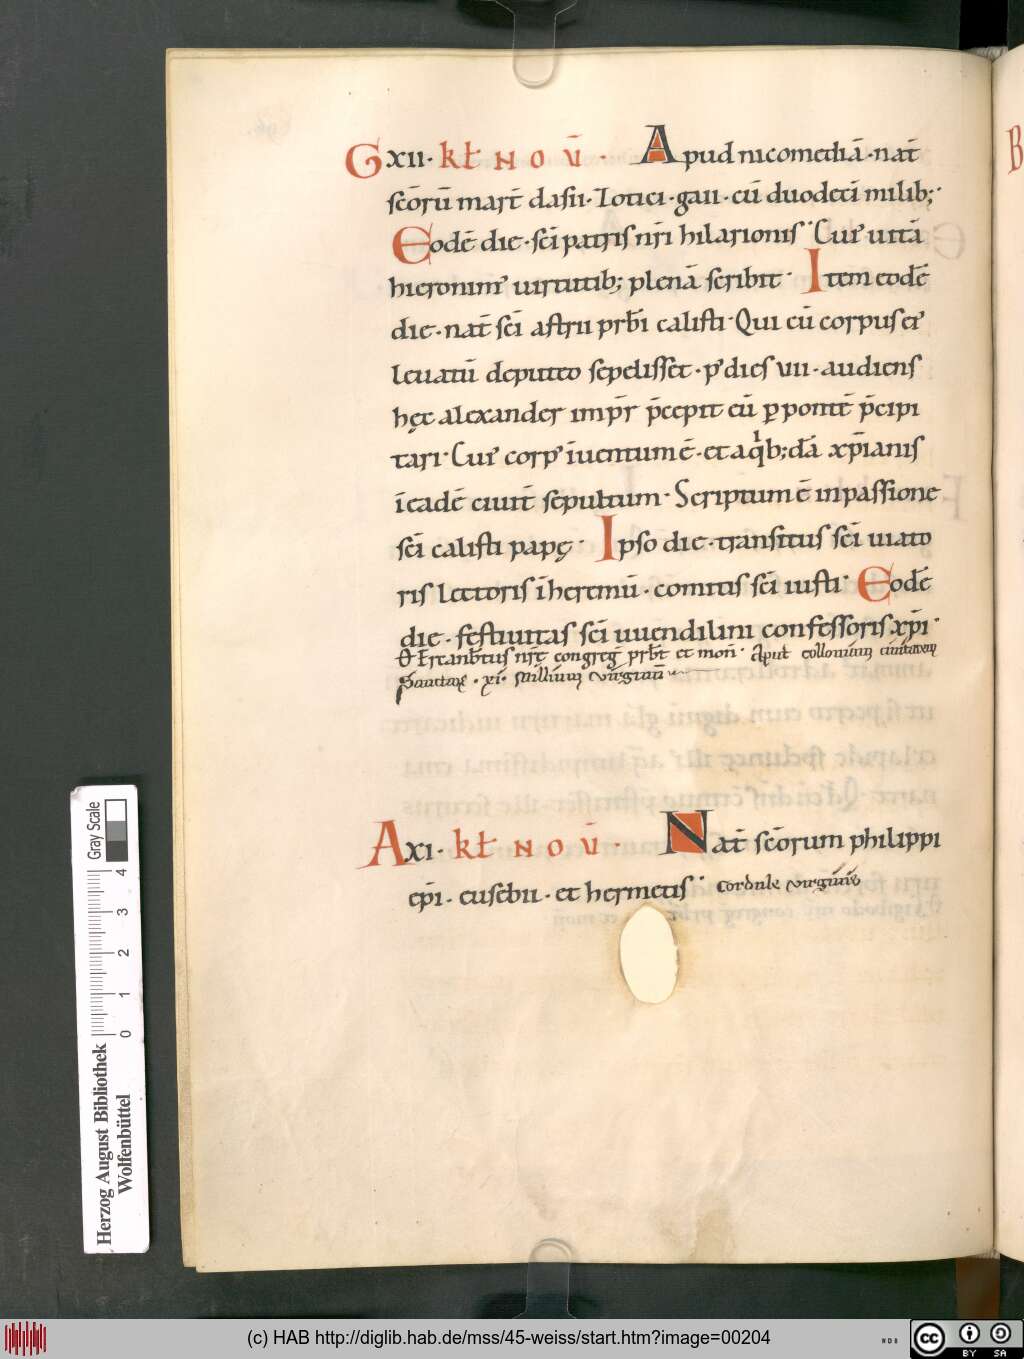 G xii· kł NOV̄· Apud nicomediā·nat̄
sc̄orū mart̄ dasii·Zotici·gaii·cū duodeci milib;·
Eodē die·sc̄i patris nr̄i hilarionis·Cuiꝰ uitā
hieronimꝰ uirtutib; plenā scribit· Item eodē
die·nat̄ sc̄i astrii prb̄i calisti·Qui cū corpus eiꝰ
leuatū de puteo sepelisset·p dies vii·audiens
hęc alexander imp̄r p̄cepit eū ꝑ pontē p̄cipi
tari·Cuiꝰ corpꝰ īuentum ē·et a qͥb;dā xp̄ianis
ī eadē ciuit̄ sepultum·Scriptum ē in passione
sc̄i calisti papę· Ipso die·transitus sc̄i uiato
ris lectoris ī heremū·comitis sc̄i iusti· Eodē
die·festiuitas sc̄i uuendilini confessoris xp̄i·
nr̄ę congreḡ prb̄t et mon̄· Aput colloniam ciuitatem
Sanctarꝝ·xi· millium virginū
A xi· kł NOV̄· Nat̄ sc̄orum philippi
ep̄i·eusebii·et hermetis· Cordule virginis
Herzog August Bibliothek
Wolfenbüttel
0 1 2 3 4
Gray Scale
(c) HAB http://diglib.hab.de/mss/45-weiss/start.htm?image=00204
cc BY SA